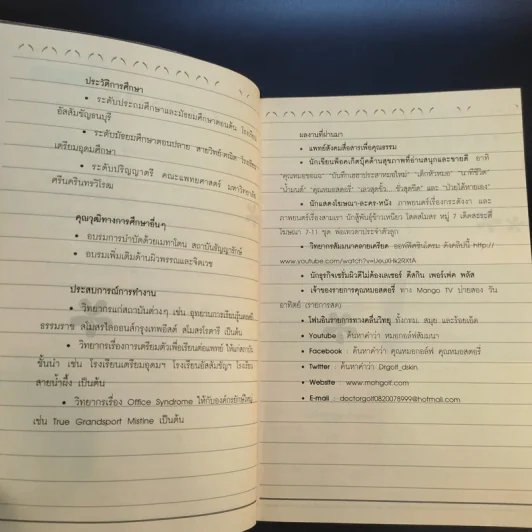 ประวัติการศึกษา
• ระดับประถมศึกษาและมัธยมศึกษาตอนต้น
อัสสัมชัญธนบุรี
• ระดับมัธยมศึกษาตอนปลาย สายวิทย์คณิต
เตรียมอุดมศึกษา
• ระดับปริญญาตรี คณะแพทยศาสตร์ มหาวิทยาลัย
ศรีนครินทรวิโรฒ
คุณวุฒิทางการศึกษาอื่นๆ
• อบรมการบำบัดด้วยเมทาโดน สถาบันธัญญารักษ์
• อบรมเพิ่มเติมด้านผิวพรรณและจิตเวช
ประสบการณ์การทำงาน
• วิทยากรแก่สถาบันต่างๆ เช่น อุทยานการเรียนรู้
ธรรมราช สโมสรไลออนส์กรุงเทพอีสต์ สโมสรโรตารี เป็นต้น
• วิทยากรเรื่องการเตรียมตัวเพื่อเรียนต่อแพทย์ ให้แก่สถาบัน
ชั้นนำ เช่น โรงเรียนเตรียมอุดมฯ โรงเรียนอัสสัมชัญ โรงเรียน
สายน้ำผึ้ง เป็นต้น
• วิทยากรเรื่อง Office Syndrome ให้กับองค์กรยักษ์ใหญ่
เช่น True Grandsport Mistine เป็นต้น
ผลงานที่ผ่านมา
• แพทย์สังคมสื่อสารเพื่อคุณธรรม
• นักเขียนพ็อคเก็ตบุ้คด้านสุขภาพที่อ่านสนุกและขายดี อาทิ
"คุณหมอขอแฉ" "บันทึกเฮฮาประสาหมอใหม่" "เด็กหัวหมอ" "นาทีชีวิต"
"น้ำมนต์" "คุณหมอสตอรี่" "เลวสุดขั้ว...ชั่วสุดขีด" และ "ป่วยได้หายเอง"
• นักแสดงโฆษณา-ละคร-หนัง ภาพยนตร์เรื่องกระดังงา และ
ภาพยนตร์เรื่องสามเรา นักสู้พันธุ์ข้าวเหนียว โคตสโมสร หมู่ 7 เด็ดสะระตี่
โฆษณา 7-11 ชุด พ่อเทวดาประจำตัวลูก
• วิทยากรสัมมนาคลายเครียด ออฟฟิศซินโดรม ดังคลิปนี้ http://
• นักธุรกิจเซรั่มผิวดีไม่ต้องเลเซอร์ ดีสกิน เพอร์เฟค พลัส
• เจ้าของรายการคุณหมอสตอรี่ ทาง Mango TV บ่ายสอง วัน
อาทิตย์ (รายการสด)
• โฟนอินรายการทางคลื่นวิทยุ ทั้งกทม. สมุย และร้อยเอ็ด
• Youtube : ค้นหาคำว่า หมอกอล์ฟสัมมนา
• Facebook : ค้นหาคำว่า คุณหมอกอล์ฟ คุณหมอสตอรี่
• Twitter : ค้นหาคำว่า Drgolf_dskin
• Website : www.morgolf.com
• E-mail : doctorgolf0820078999@hotmail.com